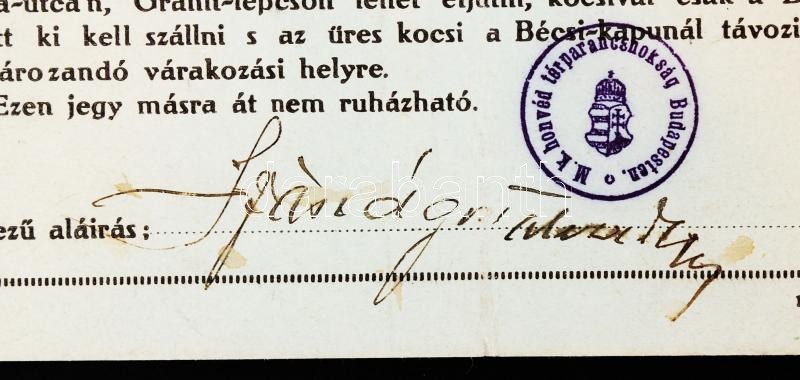 a-utcán, Gránit-lépcsőn lehet eljutni, kocsival csak a B
tt ki kell szállni s az üres kocsi a Bécsi-kapunál távozi
ározandó várakozási helyre.
Ezen jegy másra át nem ruházható.
M. k. honvéd térparancsnokság Budapesten.
darabanth
ezű aláírás: